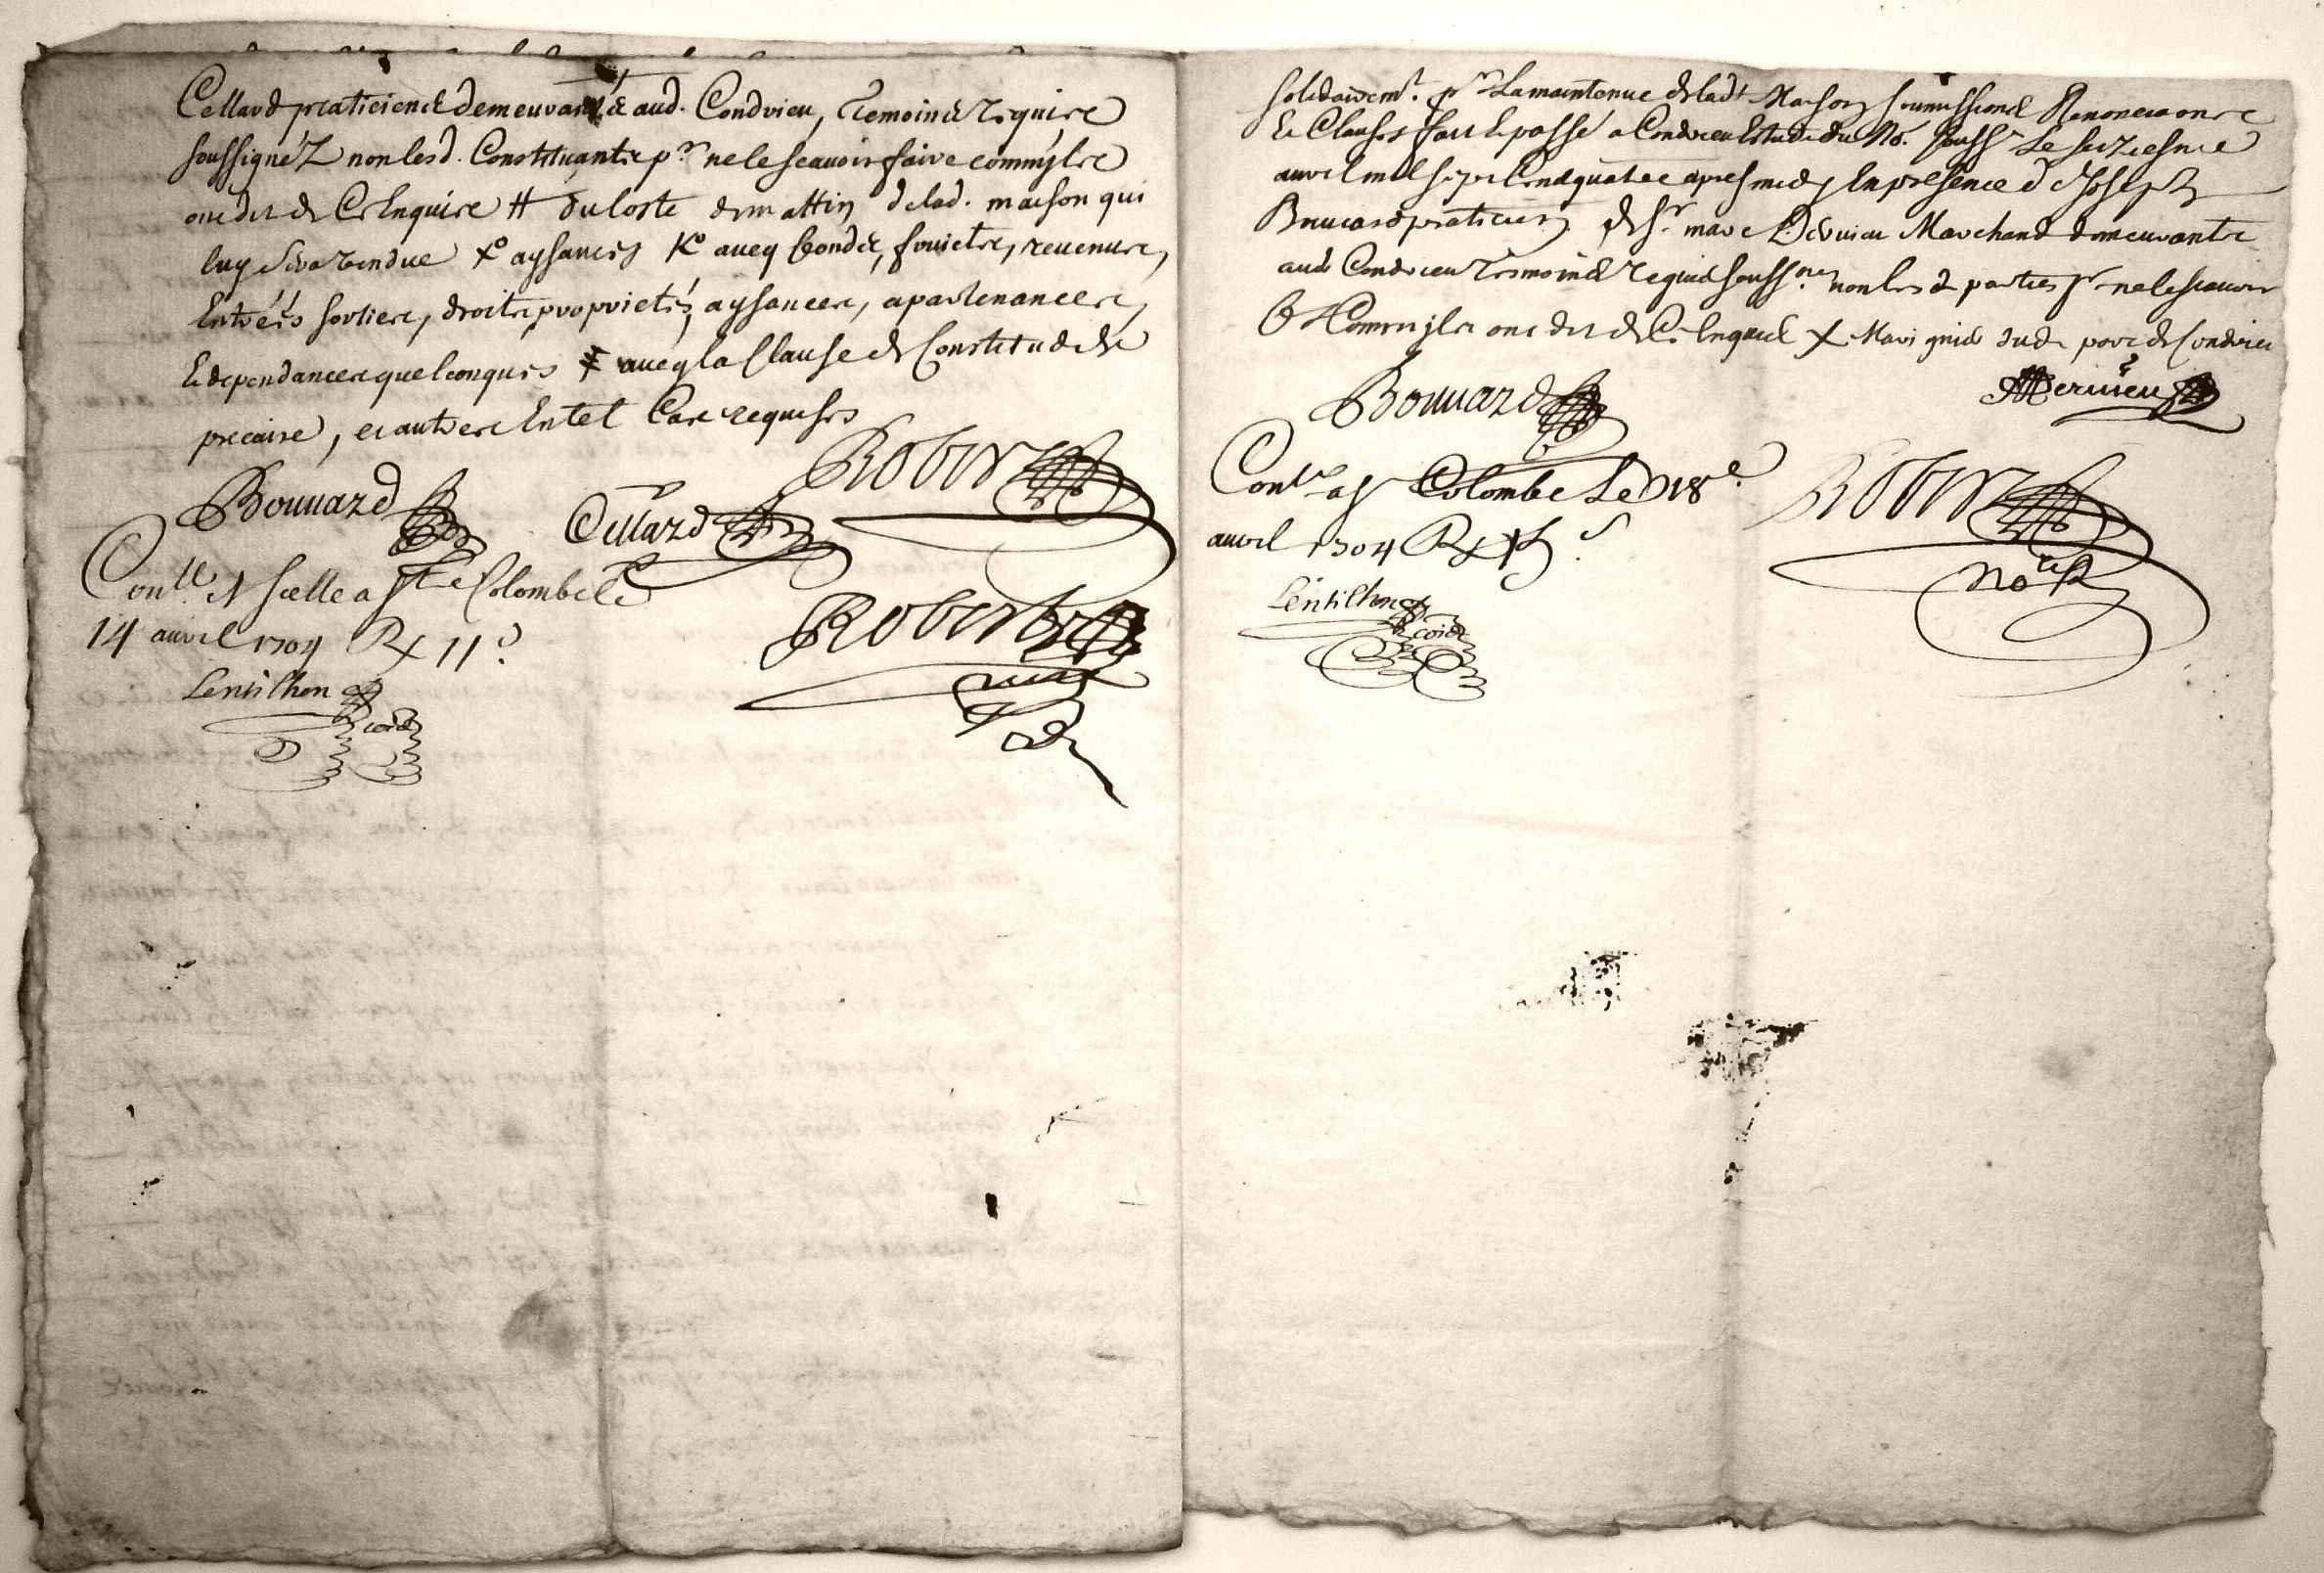 Cellard praticiens demeurants aud. Condrieu, Temoins requis
soussignéz non lesd. Constituants pr. ne le scavoir faire comm'ils
ont dit de ce Enquis # du coste de mattin de lad. maison qui
luy sera rendue x° aysances K° aueq fonds, fruicts, reuenus,
Entrées sorties, droits proprietés, aysances, apartenances,
& dependances quelconques ‡ aueq la Clause de Constitud de
precaire, et autres En tel Cas requises
Bouuard Cellard Robert
Conllé et scellé a Ste Colombe le
14 auril 1704 Rx 11 s.
Robert
Lentilhon
Solidairemt. pr La maintenue de ladt Maison soumissions Renonciaons
& Clauses fait & passé a Condrieu Estude du No. souss. Le seiziesme
auril mil sept Cens quatre apres midy En presence de Joseph
Bouuard praticien & Sr. marc Deruieu Marchand demeurants
aud. Condrieu Tesmoins requis souss.nes non les d. parties pr ne le scauoir
comm'ils ont dit de Ce Enquis x Mariniers dud. port de Condrieu
Bouuard
Conllé a St Colombe Le 18e
auril 1704 Rx
Robert
nore
Lentilhon